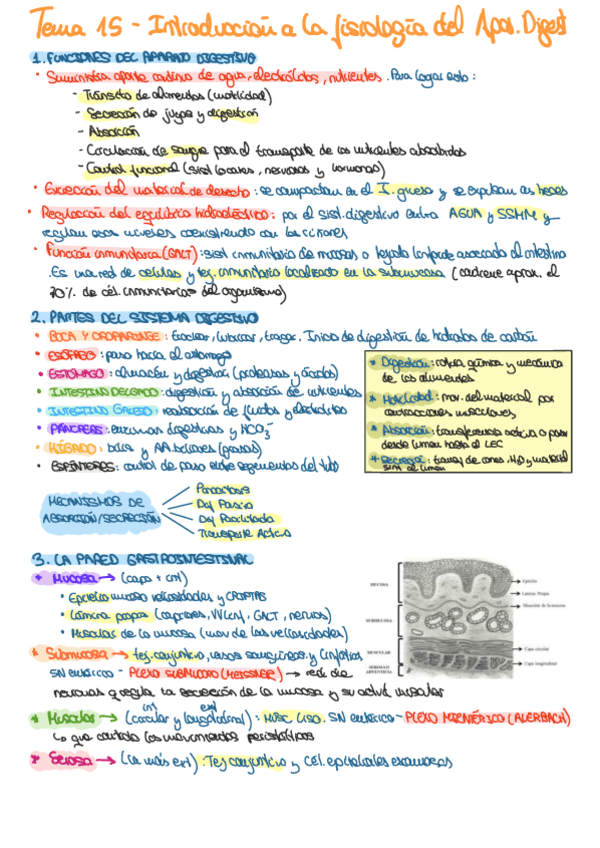 Tema 15 - Introducción a la fisiología del Apar. Digest
1. FUNCIONES DEL APARATO DIGESTIVO
• Suministra aporte continuo de agua, electrólitos, nutrientes. Para lograr esto:
- Tránsito de alimentos (motilidad)
- Secreción de jugos y digestión
- Absorción
- Circulación de sangre para el transporte de los nutrientes absorbidos
- Control funcional (sist locales, nervioso y hormonas)
• Excreción del material de desecho: se compactan en el I. grueso y se expulsan as heces
• Regulación del equilibrio hidroeléctrico: por el sist. digestivo entra AGUA y SSMM y
regulan esos niveles coexistiendo con los riñones
• Función inmunitaria (GALT): sist inmunitario de mucosas o tejido linfoide asociado al intestino
. Es una red de células y tej. inmunitario localizado en la submucosa (contiene aprox. el
70% de cél. inmunitarias del organismo)
2. PARTES DEL SISTEMA DIGESTIVO
• BOCA Y OROFARINGE: trocear, lubricar, tragar. Inicio de digestión de hidratos de carbón
• ESÓFAGO: paso hacia el estómago
• ESTÓMAGO: almacén y digestión (proteasas y ácidos)
• INTESTINO DELGADO: digestión y absorción de nutrientes
• INTESTINO GRUESO: reabsorción de fluidos y electrolitos
• PÁNCREAS: enzimas digestivas y HCO3-
• HÍGADO: bilis y AA biliares (grasas)
• ESFÍNTERES: control de paso entre segmentos del tubo
* Digestión: rotura química y mecánica
de los alimentos
* Motilidad: mov. del material por
contracciones musculares
* Absorción: transferencia activa o pasiv
desde lumen hasta el LEC
* Secreción: transf de iones, H2O y material
sint al lumen
MECANISMOS DE
ABSORCIÓN/SECRECIÓN
Pinocitosis
Dif Pasiva
Dif Facilitada
Transporte Activo
3. LA PARED GASTROINTESTINAL
* Mucosa → (capa + int)
• Epitelio mucoso vellosidades y CRIPTAS
• Lámina propia (capilares, VV linf, GALT, nervios)
• Muscular de la mucosa (mov de las vellosidades)
* Submucosa → tej. conjuntivo, vasos sanguíneos y linfáticos
SN entérico - PLEXO SUBMUCOSO (MEISSNER) → red de
neuronas q regula la secreción de la mucosa y su activ. muscular
* Muscular → (circular y longitudinal): Músc Liso. SN entérico - PLEXO MIENTÉRICO (AUERBACH)
int ext
↳ que controla los movimientos peristálticos
* Serosa → (la más ext): Tej conjuntivo y cél. epiteliales escamosas
MUCOSA
SUBMUCOSA
MUSCULAR
SEROSA O
ADVENTICIA
Epitelio
Lámina Propia
Muscular de la mucosa
Capa circular
Capa longitudinal